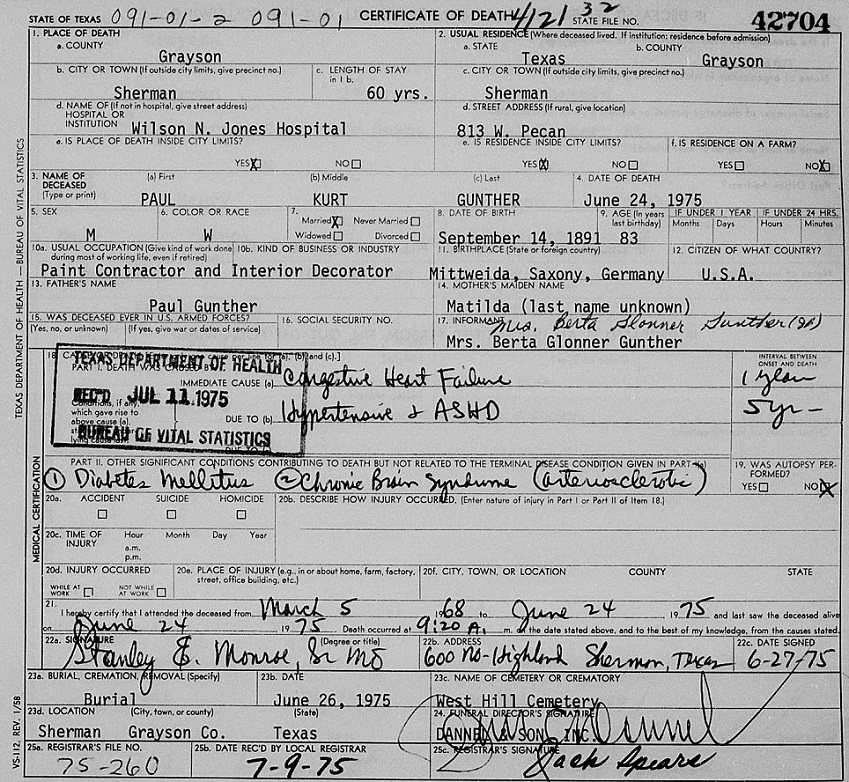 STATE OF TEXAS 091-01-2 091-01 CERTIFICATE OF DEATH 4/21 32 STATE FILE NO. 42704
1. PLACE OF DEATH
a. COUNTY
Grayson
2. USUAL RESIDENCE (Where deceased lived. If institution: residence before admission)
a. STATE b. COUNTY
Texas Grayson
b. CITY OR TOWN (If outside city limits, give precinct no.) c. LENGTH OF STAY in 1 b.
Sherman 60 yrs.
c. CITY OR TOWN (If outside city limits, give precinct no.)
Sherman
d. NAME OF (If not in hospital, give street address)
HOSPITAL OR
INSTITUTION Wilson N. Jones Hospital
d. STREET ADDRESS (If rural, give location)
813 W. Pecan
e. IS PLACE OF DEATH INSIDE CITY LIMITS?
YES X NO
e. IS RESIDENCE INSIDE CITY LIMITS? f. IS RESIDENCE ON A FARM?
YES X NO YES NO X
3. NAME OF DECEASED (Type or print) (a) First (b) Middle (c) Last 4. DATE OF DEATH
PAUL KURT GUNTHER June 24, 1975
5. SEX 6. COLOR OR RACE 7. Married X Never Married Widowed Divorced
M W
8. DATE OF BIRTH 9. AGE (In years last birthday) IF UNDER 1 YEAR IF UNDER 24 HRS.
Months Days Hours Minutes
September 14, 1891 83
10a. USUAL OCCUPATION (Give kind of work done during most of working life, even if retired) 10b. KIND OF BUSINESS OR INDUSTRY
Paint Contractor and Interior Decorator
11. BIRTHPLACE (State or foreign country) 12. CITIZEN OF WHAT COUNTRY?
Mittweida, Saxony, Germany U.S.A.
13. FATHER'S NAME
Paul Gunther
14. MOTHER'S MAIDEN NAME
Matilda (last name unknown)
15. WAS DECEASED EVER IN U.S. ARMED FORCES? 16. SOCIAL SECURITY NO.
(Yes, no, or unknown) (If yes, give war or dates of service)
17. INFORMANT Mrs. Berta Glonner Gunther
Mrs. Berta Glonner Gunther
TEXAS DEPARTMENT OF HEALTH
REC'D JUL 11 1975
BUREAU OF VITAL STATISTICS
PART I. DEATH WAS CAUSED BY
INTERVAL BETWEEN ONSET AND DEATH
IMMEDIATE CAUSE (a) Congestive Heart Failure 1 year
Conditions, if any, which gave rise to above cause (a),
DUE TO (b) Hypertensive & ASHD 5 yr
PART II. OTHER SIGNIFICANT CONDITIONS CONTRIBUTING TO DEATH BUT NOT RELATED TO THE TERMINAL DISEASE CONDITION GIVEN IN PART
1 Diabetes Mellitus 2 Chronic Brain Syndrome (arteriosclerotic)
19. WAS AUTOPSY PERFORMED?
YES NO X
20a. ACCIDENT SUICIDE HOMICIDE
20b. DESCRIBE HOW INJURY OCCURRED. (Enter nature of injury in Part I or Part II of Item 18.)
20c. TIME OF INJURY Hour Month Day Year
a.m.
p.m.
20d. INJURY OCCURRED
WHILE AT WORK NOT WHILE AT WORK
20e. PLACE OF INJURY (e.g., in or about home, farm, factory, street, office building, etc.)
20f. CITY, TOWN, OR LOCATION COUNTY STATE
21. I hereby certify that I attended the deceased from March 5 1968 to June 24 1975 and last saw the deceased alive
on June 24 1975 Death occurred at 9:20 A. m. on the date stated above, and to the best of my knowledge, from the causes stated.
22a. SIGNATURE (Degree or title) 22b. ADDRESS 22c. DATE SIGNED
Stanley E. Monroe, Sr MD 600 No-Highland Sherman, Texas 6-27-75
23a. BURIAL, CREMATION, REMOVAL (Specify) 23b. DATE 23c. NAME OF CEMETERY OR CREMATORY
Burial June 26, 1975 West Hill Cemetery
23d. LOCATION (City, town, or county) (State)
Sherman Grayson Co. Texas
24. FUNERAL DIRECTOR'S SIGNATURE
DANNEL & SON, INC
25a. REGISTRAR'S FILE NO. 25b. DATE REC'D BY LOCAL REGISTRAR 25c. REGISTRAR'S SIGNATURE
75-260 7-9-75 Jack Spears
TEXAS DEPARTMENT OF HEALTH — BUREAU OF VITAL STATISTICS
MEDICAL CERTIFICATION
VS-112, REV. 1/58